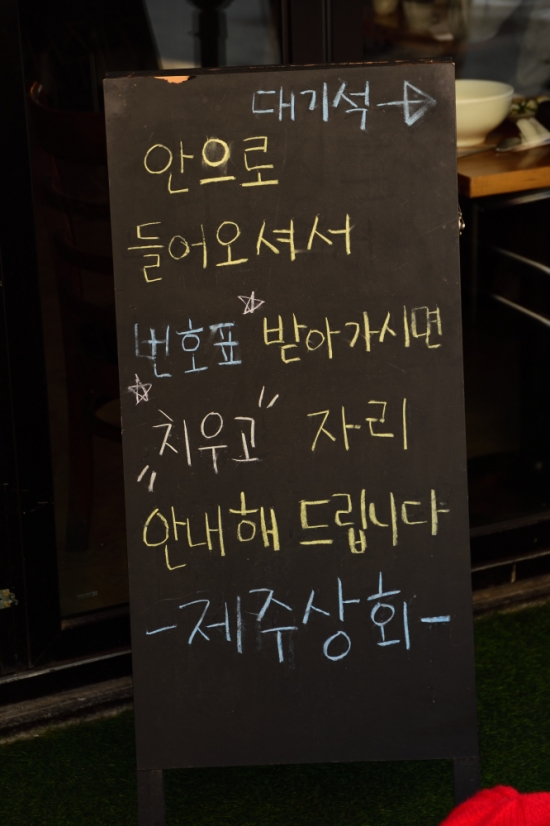 대기석 →
안으로
들어오셔서
번호표 받아가시면
"치우고" 자리
안내해 드립니다
-제주상회-